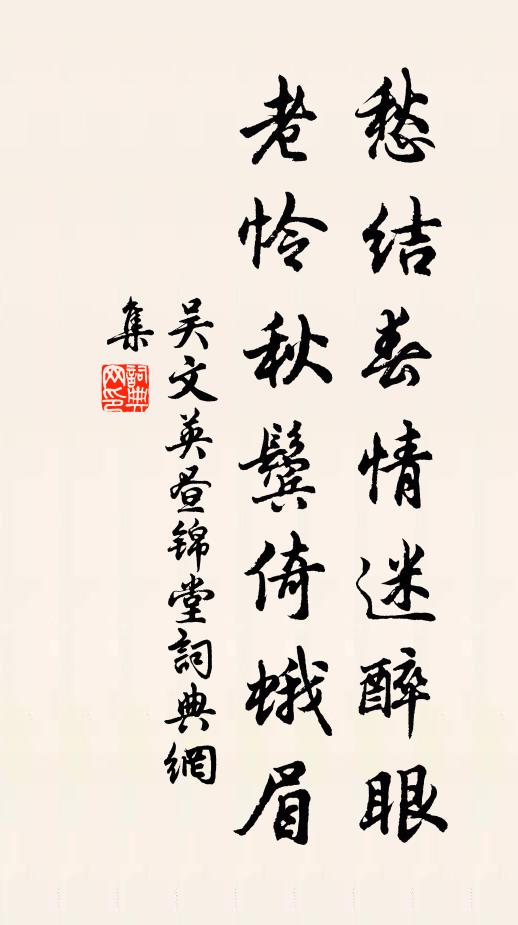 愁结春情迷醉眼
老怜秋鬓倚蛾眉
吴文英昼锦堂詞典網
集
詞典
网印